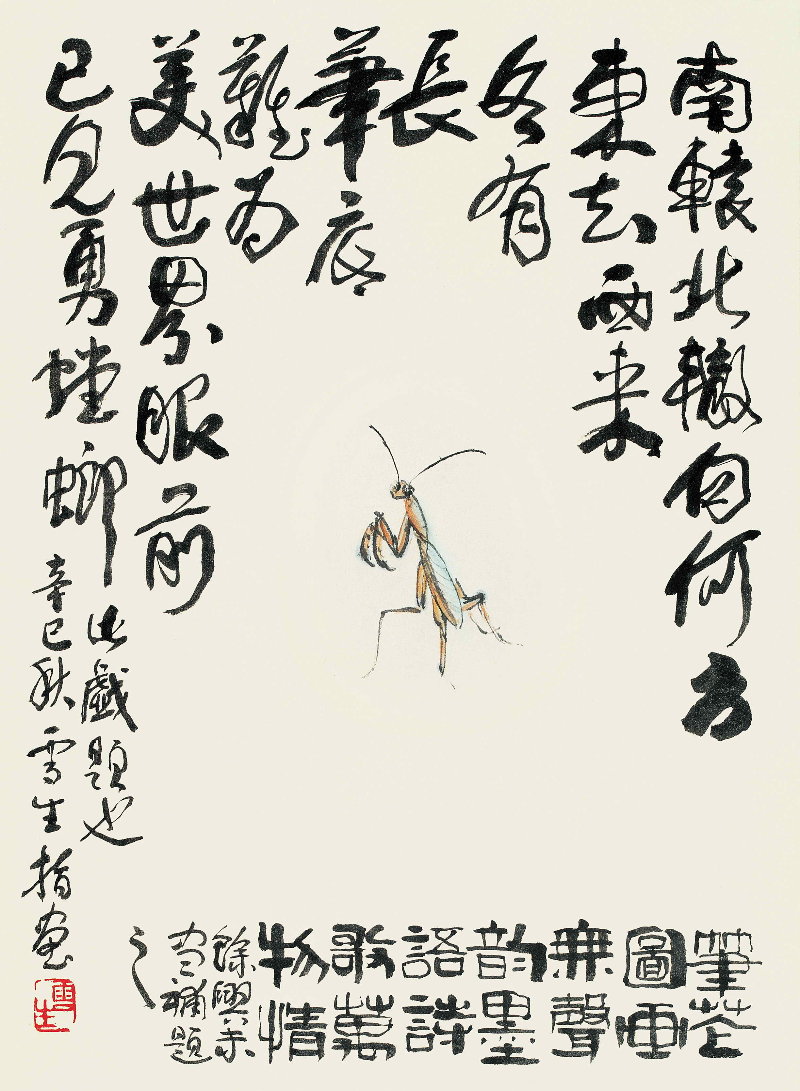 南轅北轍向何方
東去西來
各有
長
筆底
難為
美世界眼前
已見勇螳螂
此戲題也
辛巳秋雪生指畫
雪生
筆花
圖画
無聲
韵墨
語詩
歌萬
物情
餘興未
尽補題
之